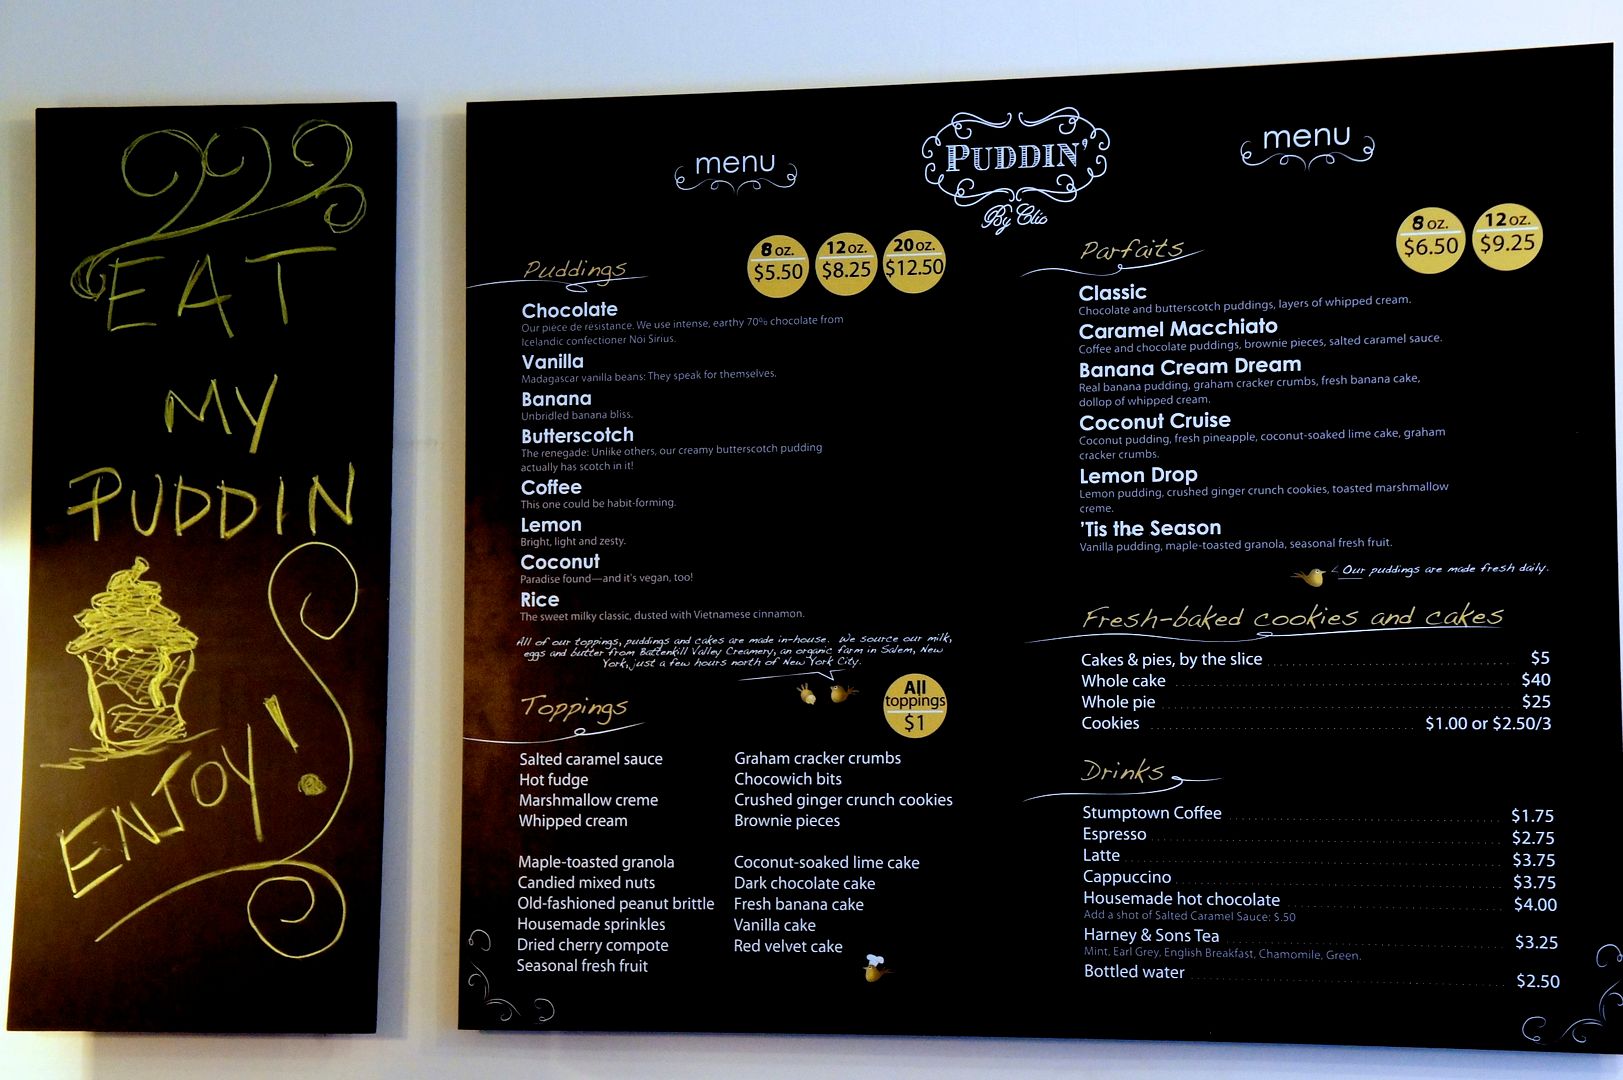 EAT
MY
PUDDIN
ENJOY!
menu
PUDDIN'
By Clio
menu
Puddings
8 oz.
$5.50
12 oz.
$8.25
20 oz.
$12.50
Chocolate
Our pièce de résistance. We use intense, earthy 70% chocolate from
Icelandic confectioner Nói Síríus.
Vanilla
Madagascar vanilla beans: They speak for themselves.
Banana
Unbridled banana bliss.
Butterscotch
The renegade: Unlike others, our creamy butterscotch pudding
actually has scotch in it!
Coffee
This one could be habit-forming.
Lemon
Bright, light and zesty.
Coconut
Paradise found—and it's vegan, too!
Rice
The sweet milky classic, dusted with Vietnamese cinnamon.
All of our toppings, puddings and cakes are made in-house. We source our milk,
eggs and butter from Battenkill Valley Creamery, an organic farm in Salem, New
York, just a few hours north of New York City.
Toppings
All
toppings
$1
Salted caramel sauce
Hot fudge
Marshmallow creme
Whipped cream
Maple-toasted granola
Candied mixed nuts
Old-fashioned peanut brittle
Housemade sprinkles
Dried cherry compote
Seasonal fresh fruit
Graham cracker crumbs
Chocowich bits
Crushed ginger crunch cookies
Brownie pieces
Coconut-soaked lime cake
Dark chocolate cake
Fresh banana cake
Vanilla cake
Red velvet cake
Parfaits
8 oz.
$6.50
12 oz.
$9.25
Classic
Chocolate and butterscotch puddings, layers of whipped cream.
Caramel Macchiato
Coffee and chocolate puddings, brownie pieces, salted caramel sauce.
Banana Cream Dream
Real banana pudding, graham cracker crumbs, fresh banana cake,
dollop of whipped cream.
Coconut Cruise
Coconut pudding, fresh pineapple, coconut-soaked lime cake, graham
cracker crumbs.
Lemon Drop
Lemon pudding, crushed ginger crunch cookies, toasted marshmallow
creme.
'Tis the Season
Vanilla pudding, maple-toasted granola, seasonal fresh fruit.
Our puddings are made fresh daily.
Fresh-baked cookies and cakes
Cakes & pies, by the slice $5
Whole cake $40
Whole pie $25
Cookies $1.00 or $2.50/3
Drinks
Stumptown Coffee $1.75
Espresso $2.75
Latte $3.75
Cappuccino $3.75
Housemade hot chocolate $4.00
Add a shot of Salted Caramel Sauce: $.50
Harney & Sons Tea $3.25
Mint, Earl Grey, English Breakfast, Chamomile, Green.
Bottled water $2.50